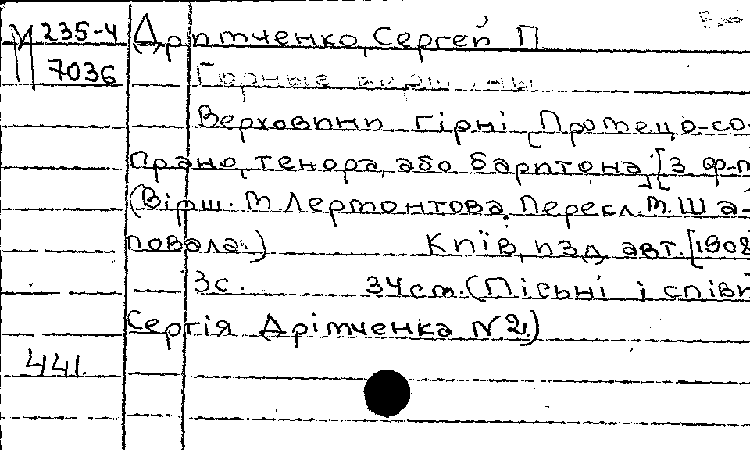 М 235-4 Дримченко, Сергей П
7036 Горные вершины
Верховини гірні [Для меццо-со-
прано, тенора, або баритона] [З ф-п
(Вірш. М Лермонтова. Перекл. М. Ша-
повала.) Київ, изд. авт. [1908
3с. 34см. (Пісьні і співи
Сергія Дрімченка №2.)
441.